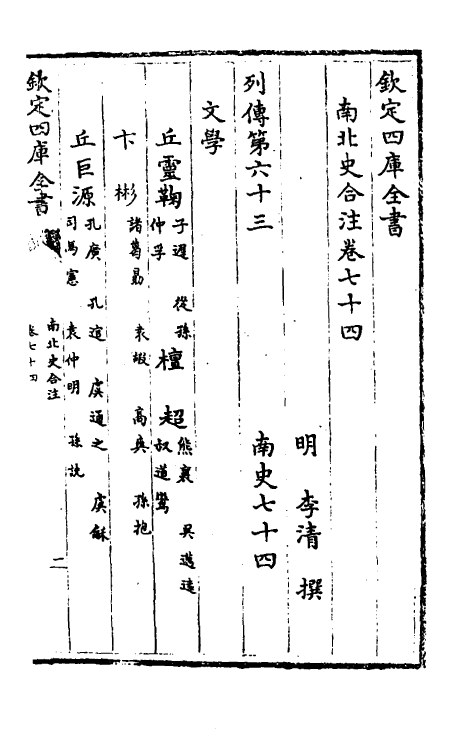 欽定四庫全書
南北史合注卷七十四
明　李清　撰
列傳第六十三　南史七十四
文學
丘靈鞠 子遲　從孫仲孚　檀　超 熊襄　吳邁遠　叔道鸞
卞　彬 諸葛勗　袁嘏　高爽　孫抱
丘巨源 孔廣　孔逭　虞通之　虞龢　司馬憲　袁仲明　孫詵
欽定四庫全書
南北史合注
卷七十四